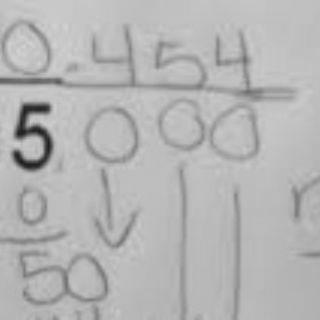 0.454
5.000
0
50